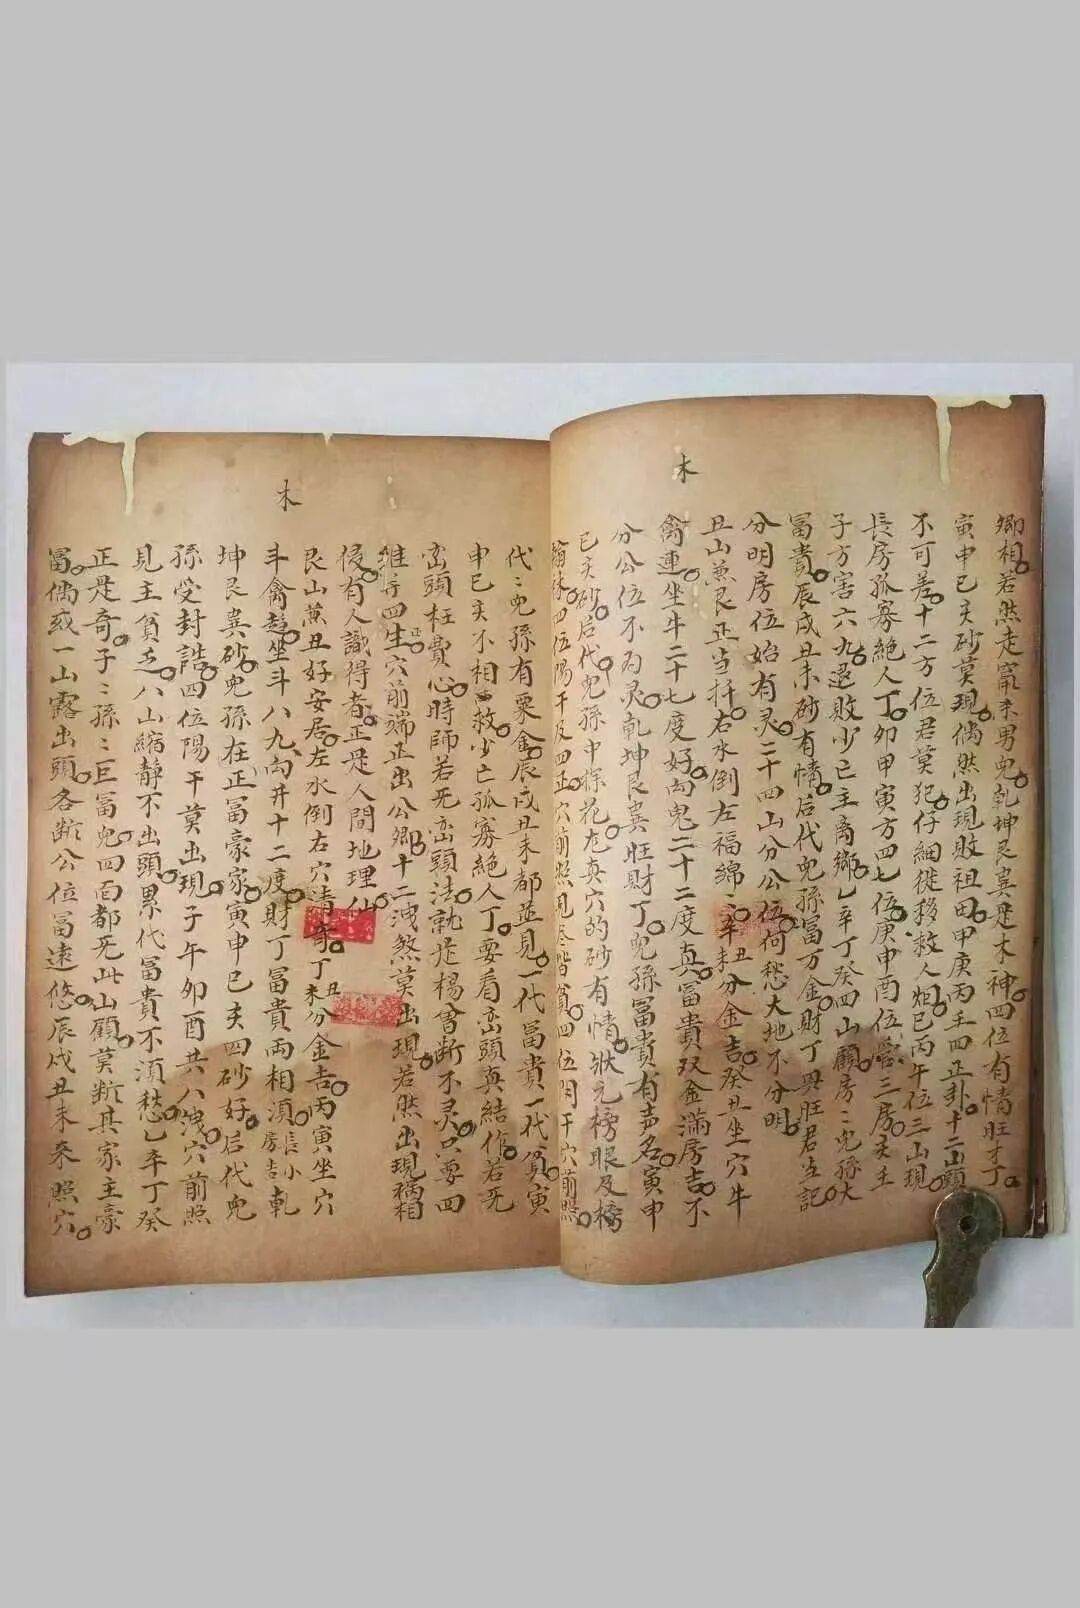 木
卿相若然走竄来男兒乾坤艮巽是木神四位有情旺才丁
寅申巳亥砂莫現偶然出現敗祖田甲庚丙壬四正卦十二山頭
不可差十二方位君莫犯仔細徙移救人炉巳丙午位三山現
長房孤寡絶人丁卯甲寅方四七位庚申酉位管三房亥壬
子方害六九退敗少亡主离鄉乙辛丁癸四山顧房〻兒孫大
冨貴辰戌丑未砂有情后代兒孫冨万金財丁興旺君當記
分明房位始有灵二十四山分公位何愁大地不分明
丑山兼艮正当扦右水倒左福綿〻辛丑辛未分金吉癸丑坐穴牛
禽連坐牛二十七度好向鬼二十二度真冨貴双金滿房吉不
分公位不為灵乾坤艮巽旺財丁兒孫冨貴有声名寅申
巳亥砂后代兒孫中探花左真穴的砂有情狀元榜眼及榜
翰林四位陽干及四正穴前照見卷階貧四位陰干穴前照
木
代〻兒孫有粟金辰戌丑未都並見一代冨貴一代貧寅
申巳亥不相救少亡孤寡絶人丁要看峦頭真結作若无
峦頭枉費心時師若无峦頭法就是楊曾断不灵只要四
維并四生穴前端正出公卿十二洩煞莫出現若然出現禍相
侵有人識得者正是人間地理仙
艮山兼丑好安居左水倒右穴清奇丁丑丁未分金吉丙寅坐穴
斗禽起坐斗八九向井十二度財丁冨貴兩相須長小房吉乾
坤艮巽砂兒孫在正冨豪家寅申巳亥四砂好后代兒
孫受封誥四位陽干莫出現子午卯酉共八洩穴前照
見主貧乏八山縮静不出頭累代冨貴不須愁乙辛丁癸
正是奇子〻孫〻巨冨兒四面都无此山顧莫断其家主豪
冨偶或一山露出頭各断公位冨遠悠辰戌丑未来照穴